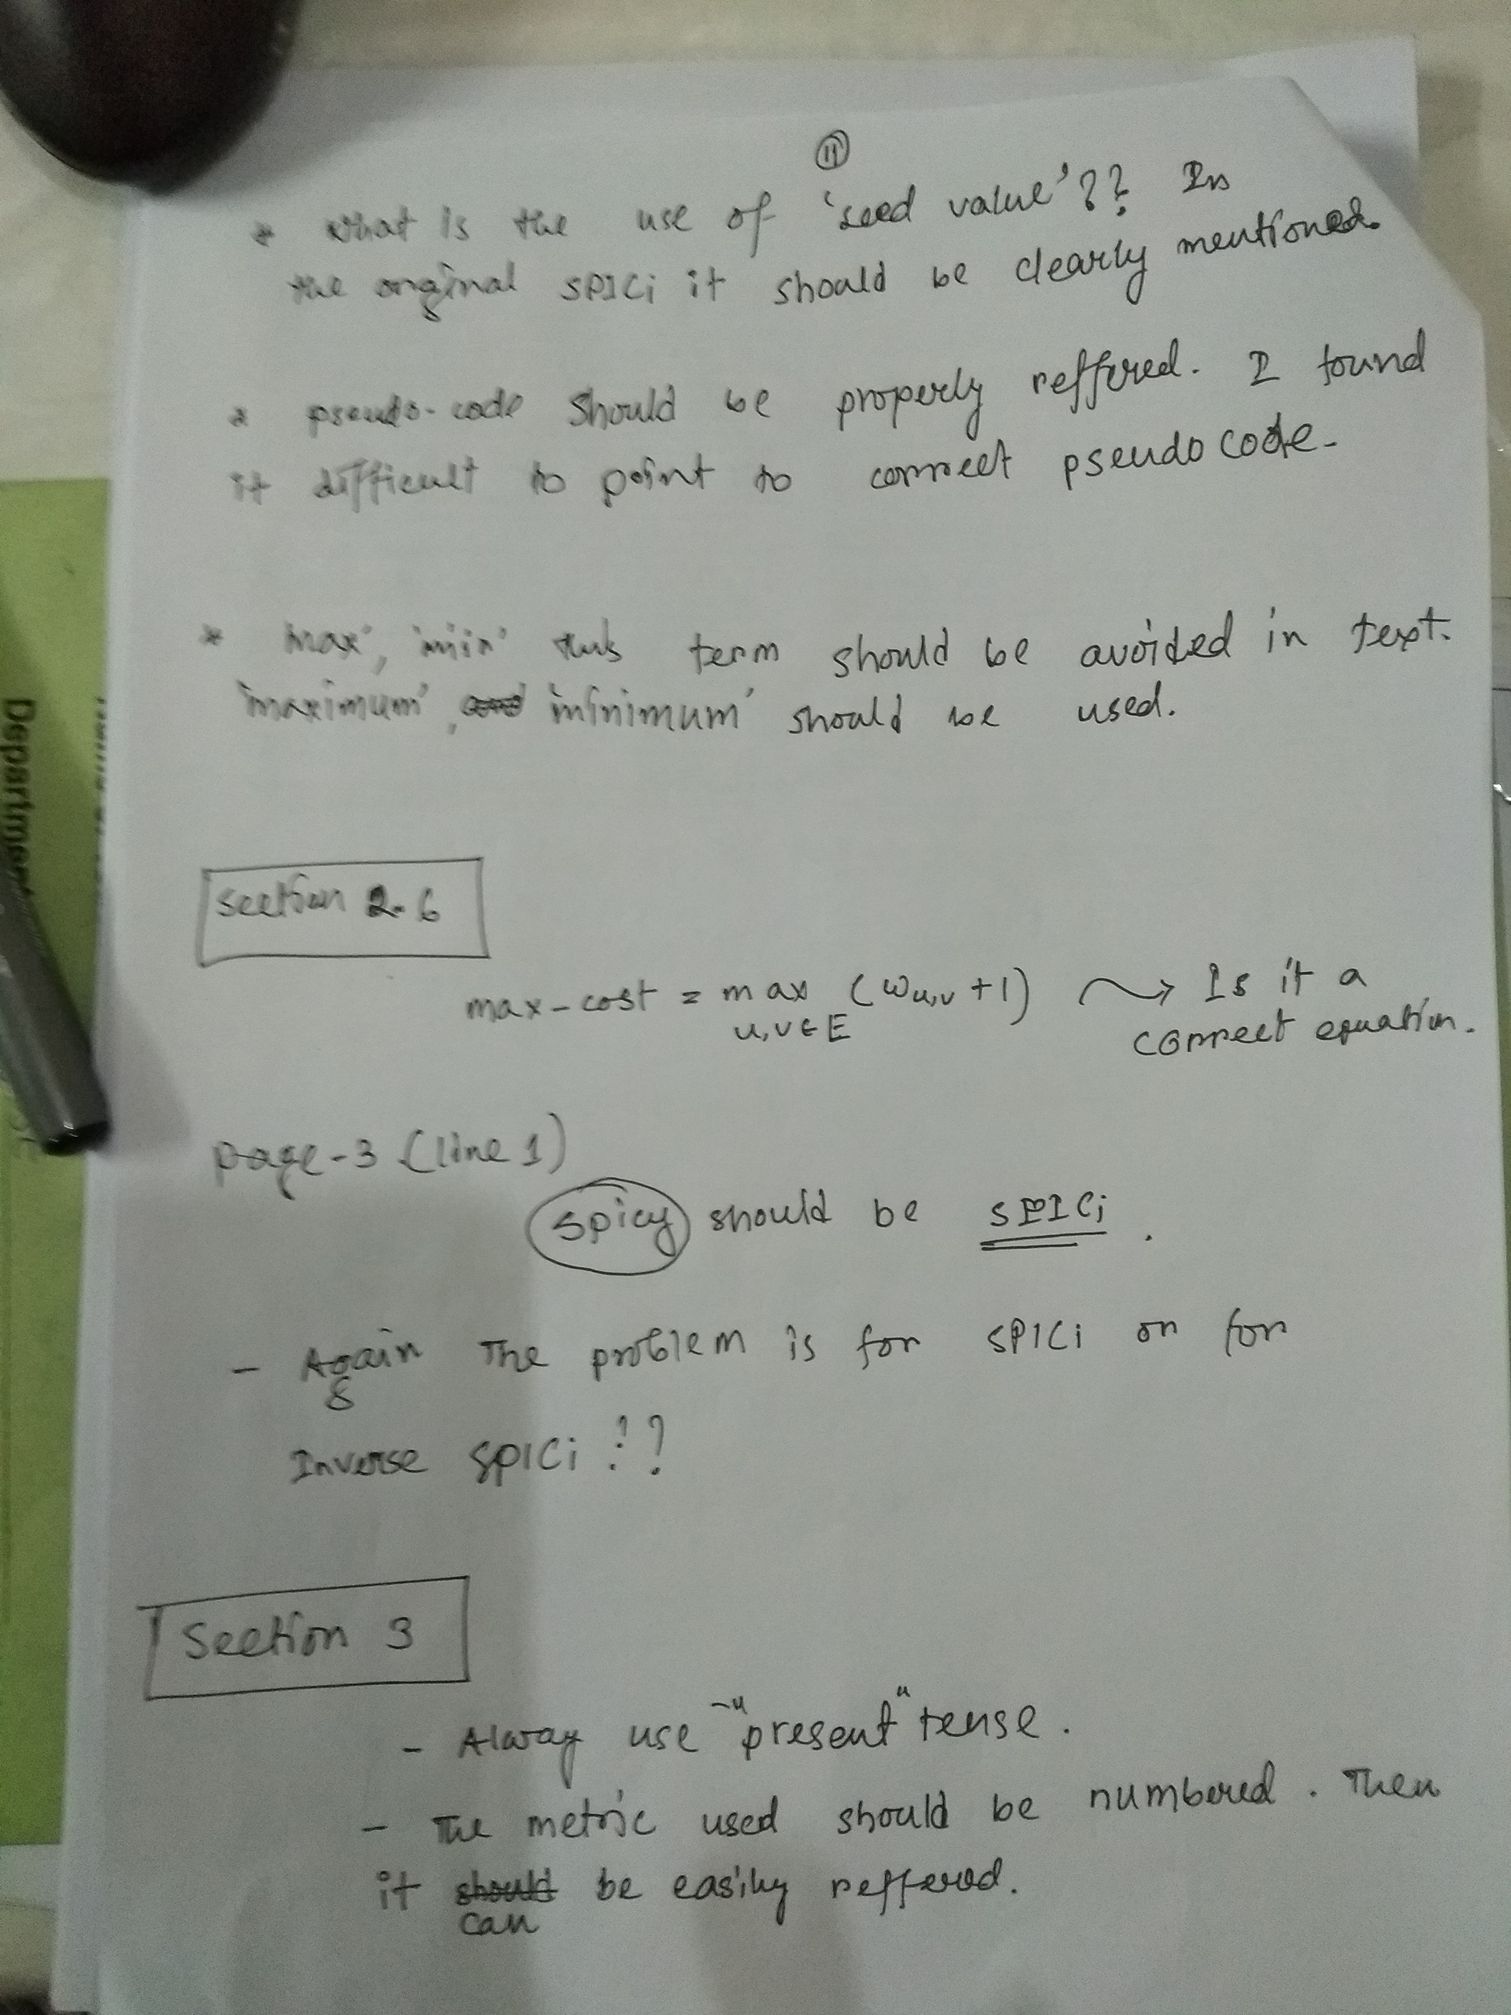 11
* What is the use of 'seed value'?? In
the original SPICi it should be clearly mentioned.
* pseudo-code should be properly reffered. I found
it difficult to point to correct pseudo code.
* 'max', 'min' this term should be avoided in text.
'maximum', and 'minimum' should be used.
Section 2.6
max-cost = max (Wu,v +1) → Is it a
u,v∈E correct equation.
page-3 (line 1)
spicy should be SPICi.
- Again the problem is for SPICi or for
Inverse SPICi ??
Section 3
- Alway use "present" tense.
- The metric used should be numbered. Then
it should be easily reffered.
can
Department